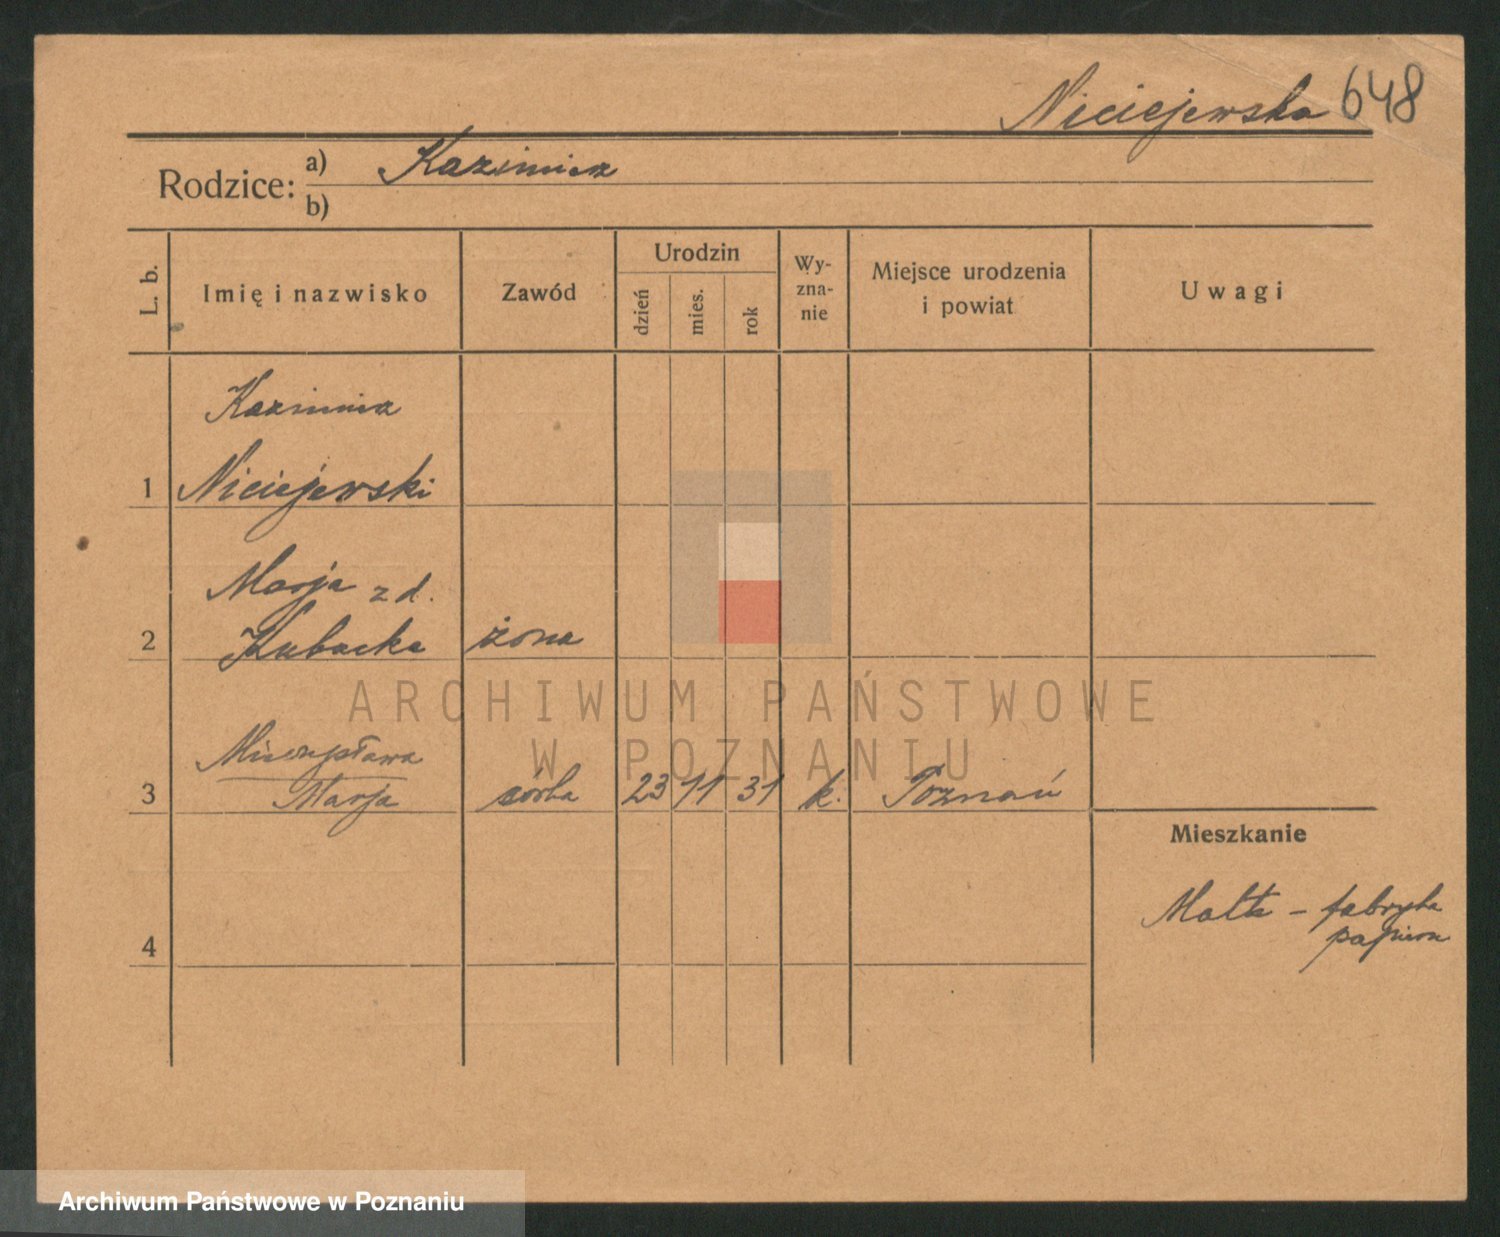 Niciejewska 648
Rodzice: a) Kazimierz
b)
L. b.
Imię i nazwisko
Zawód
Urodzin
dzień
mies.
rok
Wy-
zna-
nie
Miejsce urodzenia
i powiat
Uwagi
Kazimierz
1 Niciejewski
Marja z d.
2 Kubacka żona
ARCHIWUM PAŃSTWOWE
W POZNANIU
Mieczysława
3 Marja córka 23 11 31 k. Poznań
Mieszkanie
Malta - fabryka
papieru
4
Archiwum Państwowe w Poznaniu